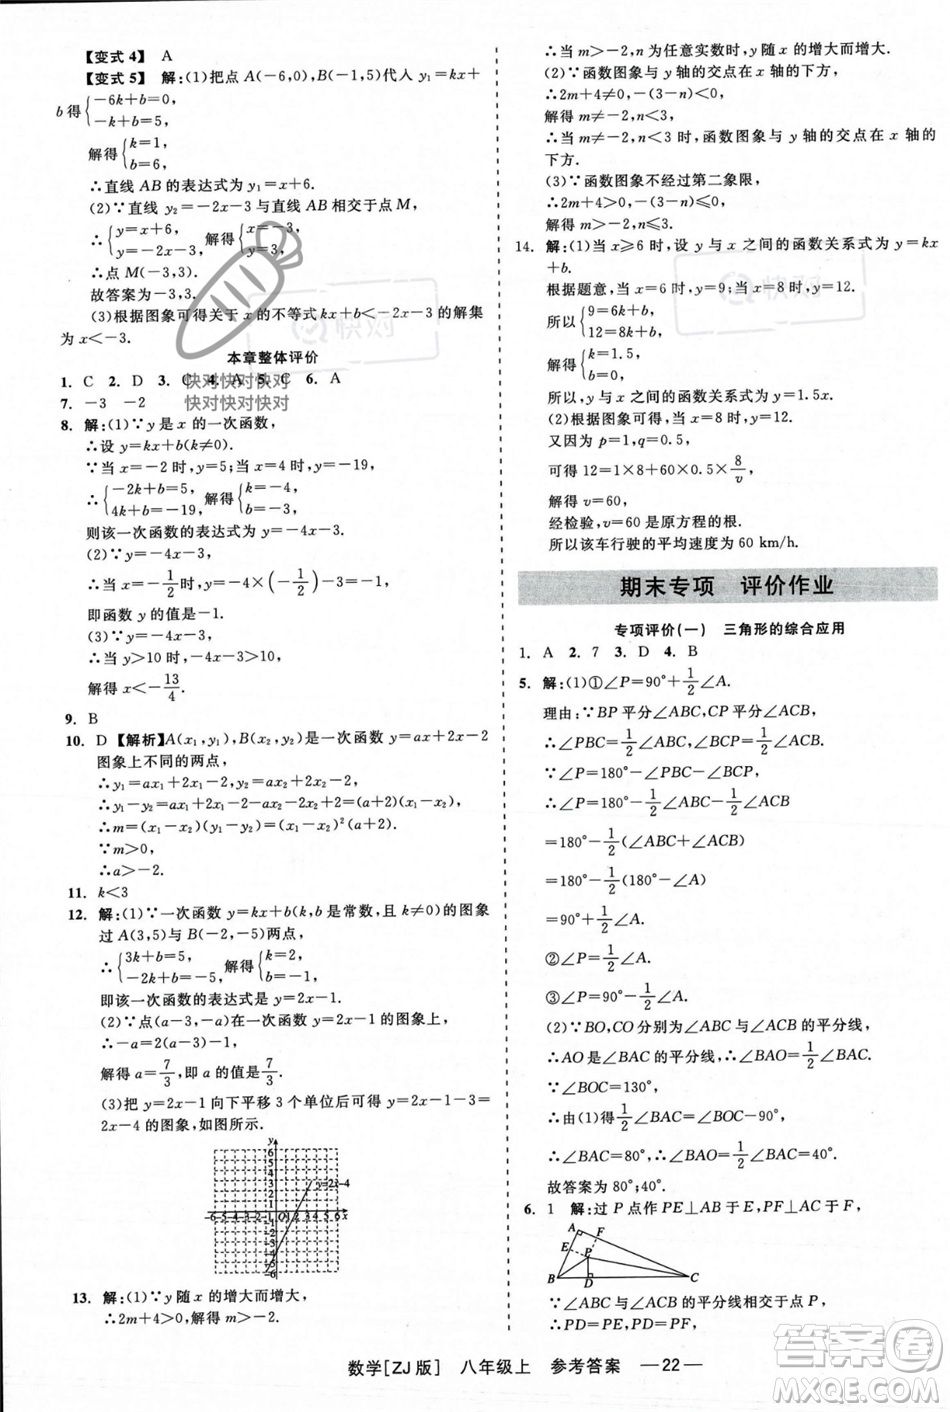 【变式4】 A
【变式5】 解:(1)把点A(-6,0),B(-1,5)代入y₁=kx+
b得{-6k+b=0,
-k+b=5,
解得{k=1,
b=6,
∴直线AB的表达式为y₁=x+6.
(2)∵直线y₂=-2x-3与直线AB交于点M,
∴{y=x+6,
y=-2x-3, 解得{x=-3,
y=3,
∴点M(-3,3).
故答案为-3,3.
(3)根据图象可得关于x的不等式kx+b<-2x-3的解集
为x<-3.
本章整体评价
1. C 2. D 3. C 4. A 5. C 6. A
7. -3 -2
8. 解:(1)∵y是x的一次函数,
∴设y=kx+b(k≠0).
∵当x=-2时,y=5;当x=4时,y=-19,
∴{-2k+b=5,
4k+b=-19, 解得{k=-4,
b=-3,
则该一次函数的表达式为y=-4x-3.
(2)∵y=-4x-3,
∴当x=-1/2时,y=-4×(-1/2)-3=-1,
即函数y的值是-1.
(3)∵y=-4x-3,y>10,
∴-4x-3>10,
解得x<-13/4.
9. B
10. D 【解析】A(x₁,y₁),B(x₂,y₂)是一次函数y=ax+2x-2
图象上不同的两点,
∴y₁=ax₁+2x₁-2,y₂=ax₂+2x₂-2,
∴y₁-y₂=ax₁+2x₁-2-ax₂-2x₂+2=(x₁-x₂)(a+2),
∴m=(x₁-x₂)(y₁-y₂)=(x₁-x₂)²(a+2).
∵m>0,
∴a>-2.
11. k<3
12. 解:(1)∵一次函数y=kx+b(k,b是常数,k≠0)的图象
过A(3,5)与B(-2,-5)两点,
∴{3k+b=5,
-2k+b=-5, 解得{k=2,
b=-1,
即该一次函数的表达式是y=2x-1.
(2)∵点(a-3,-a)在一次函数y=2x-1的图象上,
∴-a=2(a-3)-1,
解得a=7/3,即a的值是7/3.
(3)把y=2x-1向下平移3个单位后可得y=2x-1-3=
2x-4的图象,如图所示.
y
y=2x-4
x
13. 解:(1)∵y随x的增大而增大,
∴2m+4>0,解得m>-2.
∴当m>-2,n为任意实数时,y随x的增大而增大.
(2)∵函数图象与y轴的交点在x轴的下方,
∴2m+4≠0,-(3-n)<0,
解得m≠-2,n<3,
∴当m≠-2,n<3时,函数图象与y轴的交点在x轴的
下方.
(3)∵函数图象不经过第二象限,
∴2m+4>0,-(3-n)≤0,
解得m>-2,n≤3.
14. 解:(1)当x≥6时,设y与x之间的函数关系式为y=kx
+b.
根据题意,当x=6时,y=9;当x=8时,y=12.
所以{9=6k+b,
12=8k+b,
解得{k=1.5,
b=0,
所以,y与x之间的函数关系式为y=1.5x.
(2)根据图象可得,当x=8时,y=12.
又因为p=1,q=0.5,
可得12=1×8+60×0.5×8/v,
解得v=60,
经检验,v=60是原方程的根.
所以该车行驶的平均速度为60 km/h.
期末专项 评价作业
专项评价(一) 三角形的综合应用
1. A 2. 7 3. D 4. B
5. 解:(1)①∠P=90°+1/2∠A.
理由:∵BP平分∠ABC,CP平分∠ACB,
∴∠PBC=1/2∠ABC,∠PCB=1/2∠ACB,
∴∠P=180°-∠PBC-∠PCB
=180°-1/2(∠ABC+∠ACB)
=180°-1/2(180°-∠A)
=90°+1/2∠A.
②∠P=1/2∠A.
③∠P=90°-1/2∠A.
(2)∵BO,CO分别为∠ABC与∠ACB的平分线,
∴AO是∠BAC的平分线,∴∠BAO=1/2∠BAC.
∵∠BOC=130°,
∴由(1)得1/2∠BAC=∠BOC-90°,
∴∠BAC=80°,∴∠BAO=40°.
故答案为80°;40°.
6. 1 解:过P点作PE⊥AB于E,PF⊥AC于F,
A
F
E
P
B D C
∵∠ABC与∠ACB的平分线交于点P,
∴PD=PE=PF.
数学[ZJ版] 八年级上 参考答案 —22—
快对
快对快对快对快对
快对快对快对快对
快对